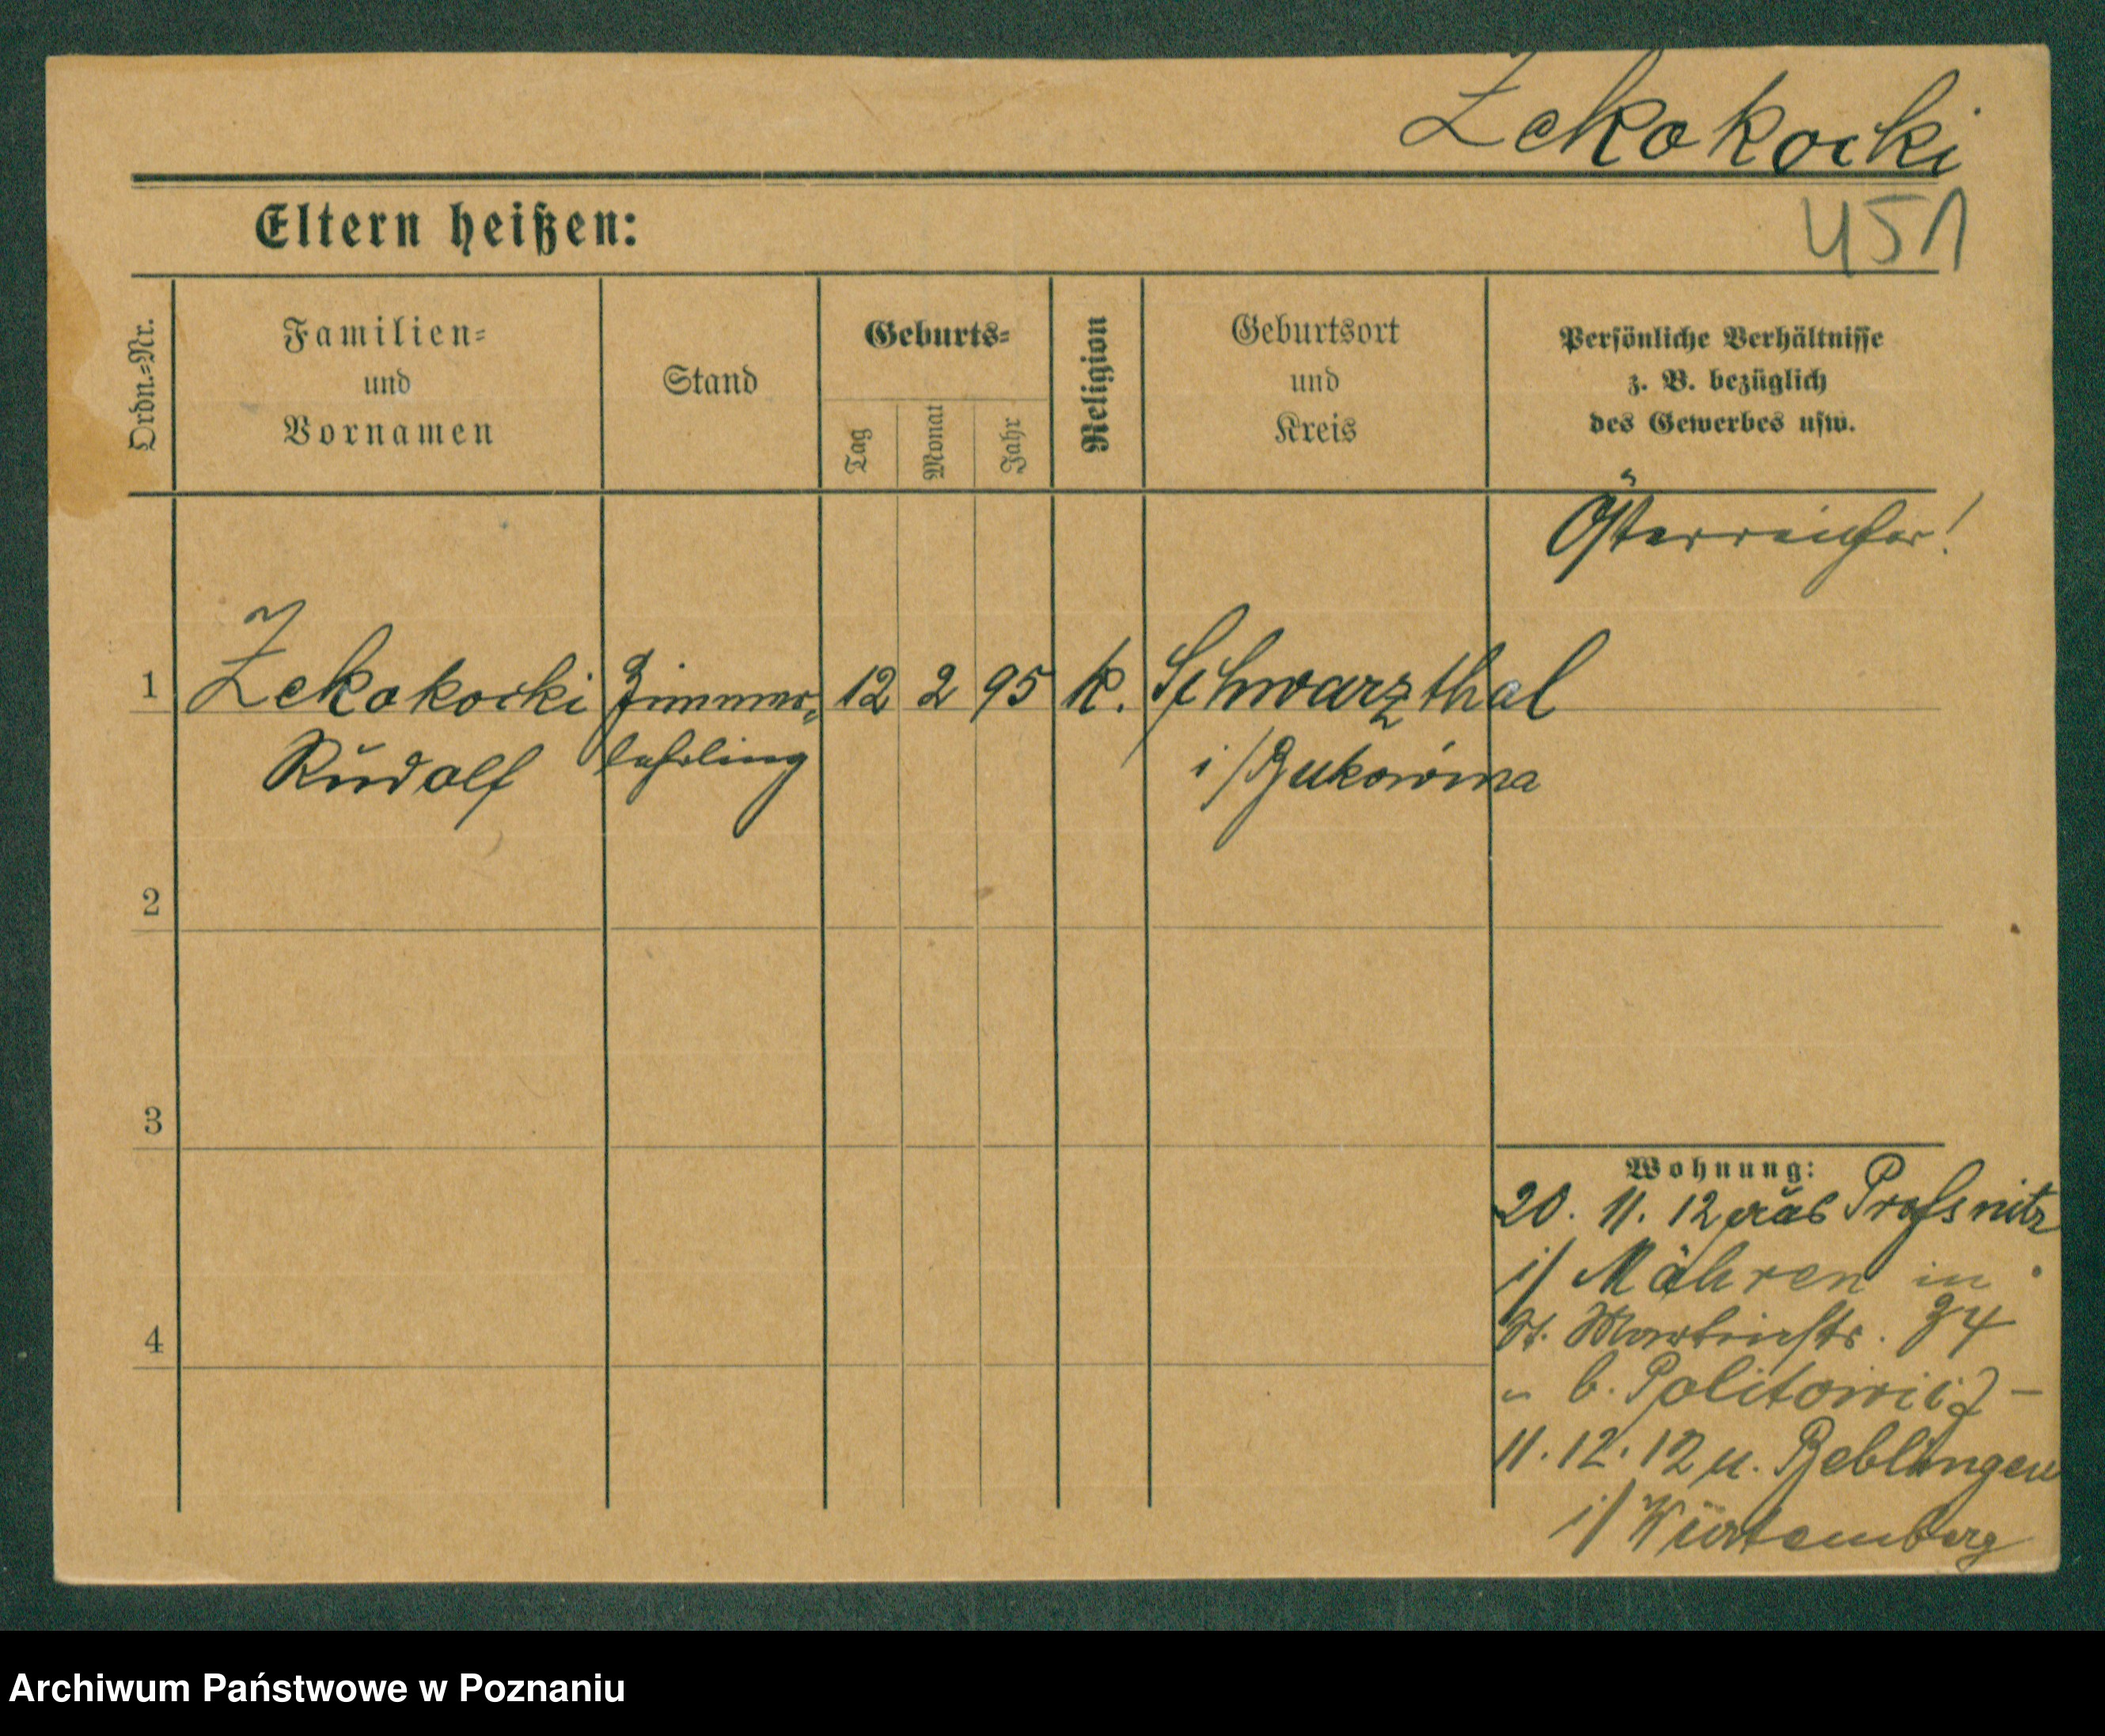 Zekokocki
451
Eltern heißen:
Ordn.-Nr.
Familien-
und
Vornamen
Stand
Geburts-
Tag
Monat
Jahr
Religion
Geburtsort
und
Kreis
Persönliche Verhältnisse
z. B. bezüglich
des Gewerbes usw.
Österreicher!
1 Zekokocki Zimmer- 12 2 95 k. Schwarzthal
Rudolf lehrling i/Bukowina
2
3
4
Wohnung:
20. 11. 12 aus Prossnitz
i/ Mähren in
St. Martinstr. 34
b. Politowicz –
11. 12. 12 n. Beblingen
i/ Würtemberg
Archiwum Państwowe w Poznaniu